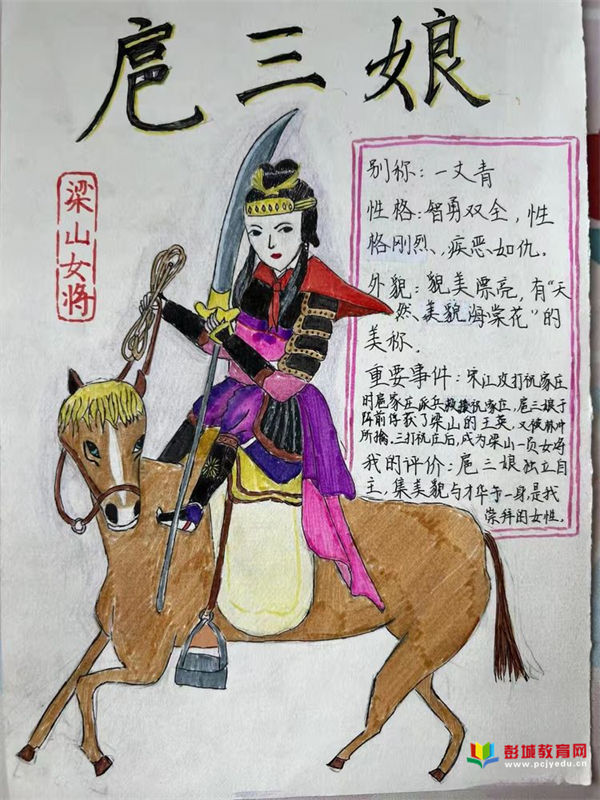 扈三娘
梁山女将
别称：一丈青
性格：智勇双全，性
格刚烈、疾恶如仇。
外貌：貌美漂亮，有“天
然、美貌海棠花”的
美称.
重要事件：宋江攻打祝家庄
时扈家庄派兵救援祝家庄，扈三娘于
阵前俘获了梁山的王英，又被林冲
所擒，三打祝庄后，成为梁山一员女将
我的评价：扈三娘独立自
主，集美貌与才华于一身，是我
崇拜的女性。
彭城教育网
www.pcjyedu.cn